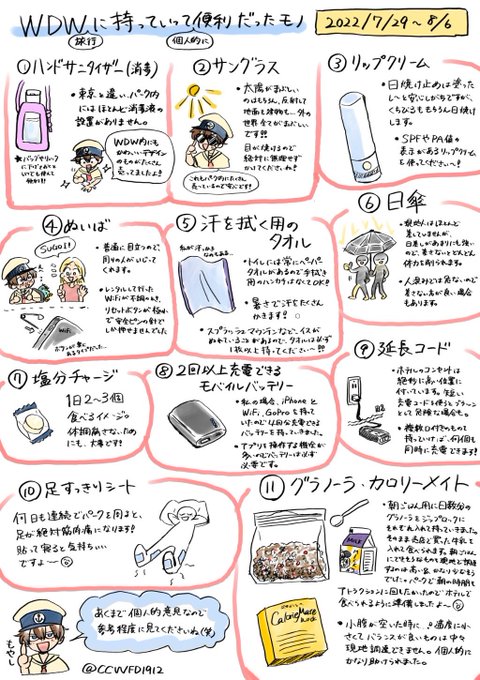 WDWに持っていって便利だったモノ
旅行
個人的に
2022/7/29〜8/6
①ハンドサニタイザー(消毒)
・東京と違い、パーク内
にはほとんど消毒液の
設置がありません。
WDW内にも
かわいいデザイン
のものがたくさん
売ってましたよ!
②サングラス
・太陽がまぶしい
のはもちろん、反射して
地面も建物も…外の
世界全てがまぶしい
です!!
目が焼けるので
絶対に無理せず
かけてくださいね!
これもパーク内にたくさん
売っているので安心です!
③リップクリーム
・日焼け止めは塗った
し〜と安心しがちですが、
くちびるももちろん日焼け
します。
・SPFやPA値の
表示があるリップクリーム
を使ってくださ〜い!
④ぬいば
SUGOI!
・普通に目立つので、
周りの人がいじって
くれます。
・レンタルして行った
WiFiが不調のとき、
リセットボタンが極小
で安全ピンの針で
しか押せませんでした。
WiFi
⑤汗を拭く用の
タオル
・トイレには常にペーパー
タオルがあるので手拭き
用のハンカチはなくてOK!
・暑さで汗をたくさん
かきます!
・スプラッシュマウンテンなど、イスが
ぬれていることがあるので、タオルは必ず
1枚以上持ってくださ〜い!!
⑥日傘
・現地の人はほとんど
差していませんが、
日差しがあまりにも強い
ので、差さないとどんどん
体力を削られます。
・人混みでは危ないので
差さない方が良い場合
もあります。
⑦塩分チャージ
1日2〜3個
食べるイメージ。
体調崩さないため
にも、大事です!
⑧2回以上充電できる
モバイルバッテリー
・私の場合、iPhoneと
WiFi、GoProを持って
いたので4回分充電できる
バッテリーを持っていきました。
・アプリを操作する機会が
多いのでバッテリーは必ず
必要です。
⑨延長コード
・ホテルのコンセントは
絶妙に高い位置に
付いています。短い
充電コードを使うとブラーン
として危険な場合も。
・複数口付きのもので
持っていけば、何個も
同時に充電できます!
⑩足すっきりシート
何日も連続でパークを回ると、
足が絶対筋肉痛になります!
貼って寝ると気持ちいい
ですよ〜
⑪グラノーラ・カロリーメイト
・朝ごはん用に日数分の
グラノーラをジップロックに
それぞれ入れて持っていきました。
そのまま売店で買った牛乳を
入れて食べられます。朝ごはん
にできそうなものを現地で調達
するのは高いし、かなり少なそう
でした。パークで朝の時間を
アトラクションに回したかったのでホテルで
食べられるように準備しましたよ〜
MILK
CalorieMate
Block
・小腹が空いた時に…!適度に小
さくてバランスが良いものは中々
現地調達できません。個人的に
かなり助けられました。
もやし
あくまで個人的意見なので
参考程度に見てくださいね(笑)
@CCWFD1912